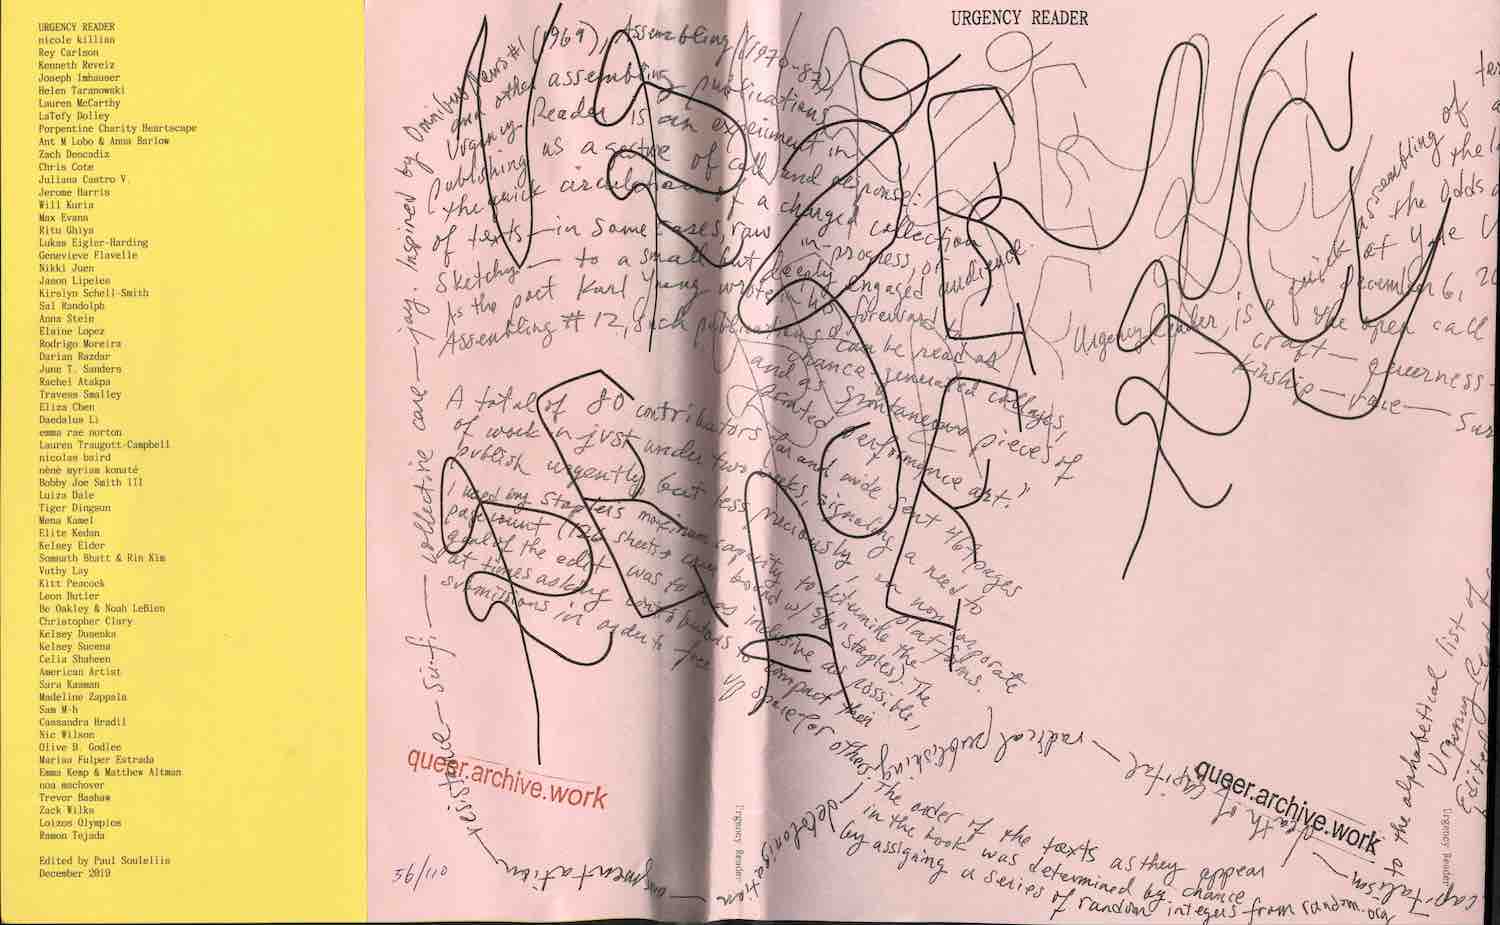 URGENCY READER
nicole killian
Rey Carlson
Kenneth Reveiz
Joseph Imhauser
Helen Taranowski
Lauren McCarthy
LaTefy Dolley
Porpentine Charity Heartscape
Ant M Lobo & Anna Barlow
Zach Deocadiz
Chris Cote
Juliana Castro V.
Jerome Harris
Will Kuria
Max Evans
Ritu Ghiya
Lukas Eigler-Harding
Genevieve Flavelle
Nikki Juen
Jason Lipeles
Kirslyn Schell-Smith
Sal Randolph
Anna Stein
Elaine Lopez
Rodrigo Moreira
Darian Razdar
June T. Sanders
Rachel Atakpa
Travess Smalley
Eliza Chen
Daedalus Li
emma rae norton
Lauren Traugott-Campbell
nicolas baird
néné myriam konaté
Bobby Joe Smith III
Luiza Dale
Tiger Dingsun
Mena Kamel
Elite Kedan
Kelsey Elder
Somnath Bhatt & Rin Kim
Vuthy Lay
Kitt Peacock
Leon Butler
Be Oakley & Noah LeBien
Christopher Clary
Kelsey Dusenka
Kelsey Sucena
Celia Shaheen
American Artist
Sara Kaaman
Madeline Zappala
Sam M-h
Cassandra Hradil
Nic Wilson
Olive B. Godlee
Marisa Fulper Estrada
Emma Kemp & Matthew Altman
noa machover
Trevor Bashaw
Zack Wilks
Loizos Olympios
Ramon Tejada
Edited by Paul Soulellis
December 2019
URGENCY READER
Inspired by Omnibus News #1 (1969), Assembling (1970-87),
and other assembling publications
Urgency Reader is an experiment in
publishing as a gesture of call and response:
the quick circulation of a charged collection
of texts—in some cases, raw in-progress, or
sketchy — to a small but deeply engaged audience.
As the poet Karl Young wrote in his foreword to
Assembling #12, such publications can be read as
chance generated collages,
and as spontaneous pieces of
performance art."
A total of 80 contributors far and wide sent 467 pages
of work in just under two weeks, signaling a need to
publish urgently but less preciously, in non-corporate
platforms.
I used my staplers maximum capacity to determine the
page count (120 sheets + cover bound w/ staples). The
goal of the edit was to be as inclusive as possible,
at times asking contributors to compact their
submissions in order to free up space for others. The order of the texts as they appear
in the book was determined by chance
by assigning a series of random integers from random.org
to the alphabetical list of
Urgency Reader, is
quick assembling of
December 6, 20
the open call
craft — queerness —
kinship — race — sur
radical publishing — capital
death of
capitalism
decolonisation
resistance — surf. — collective care — joy.
queer.archive.work
queer.archive.work
Urgency Reader
Urgency Reader
56/110